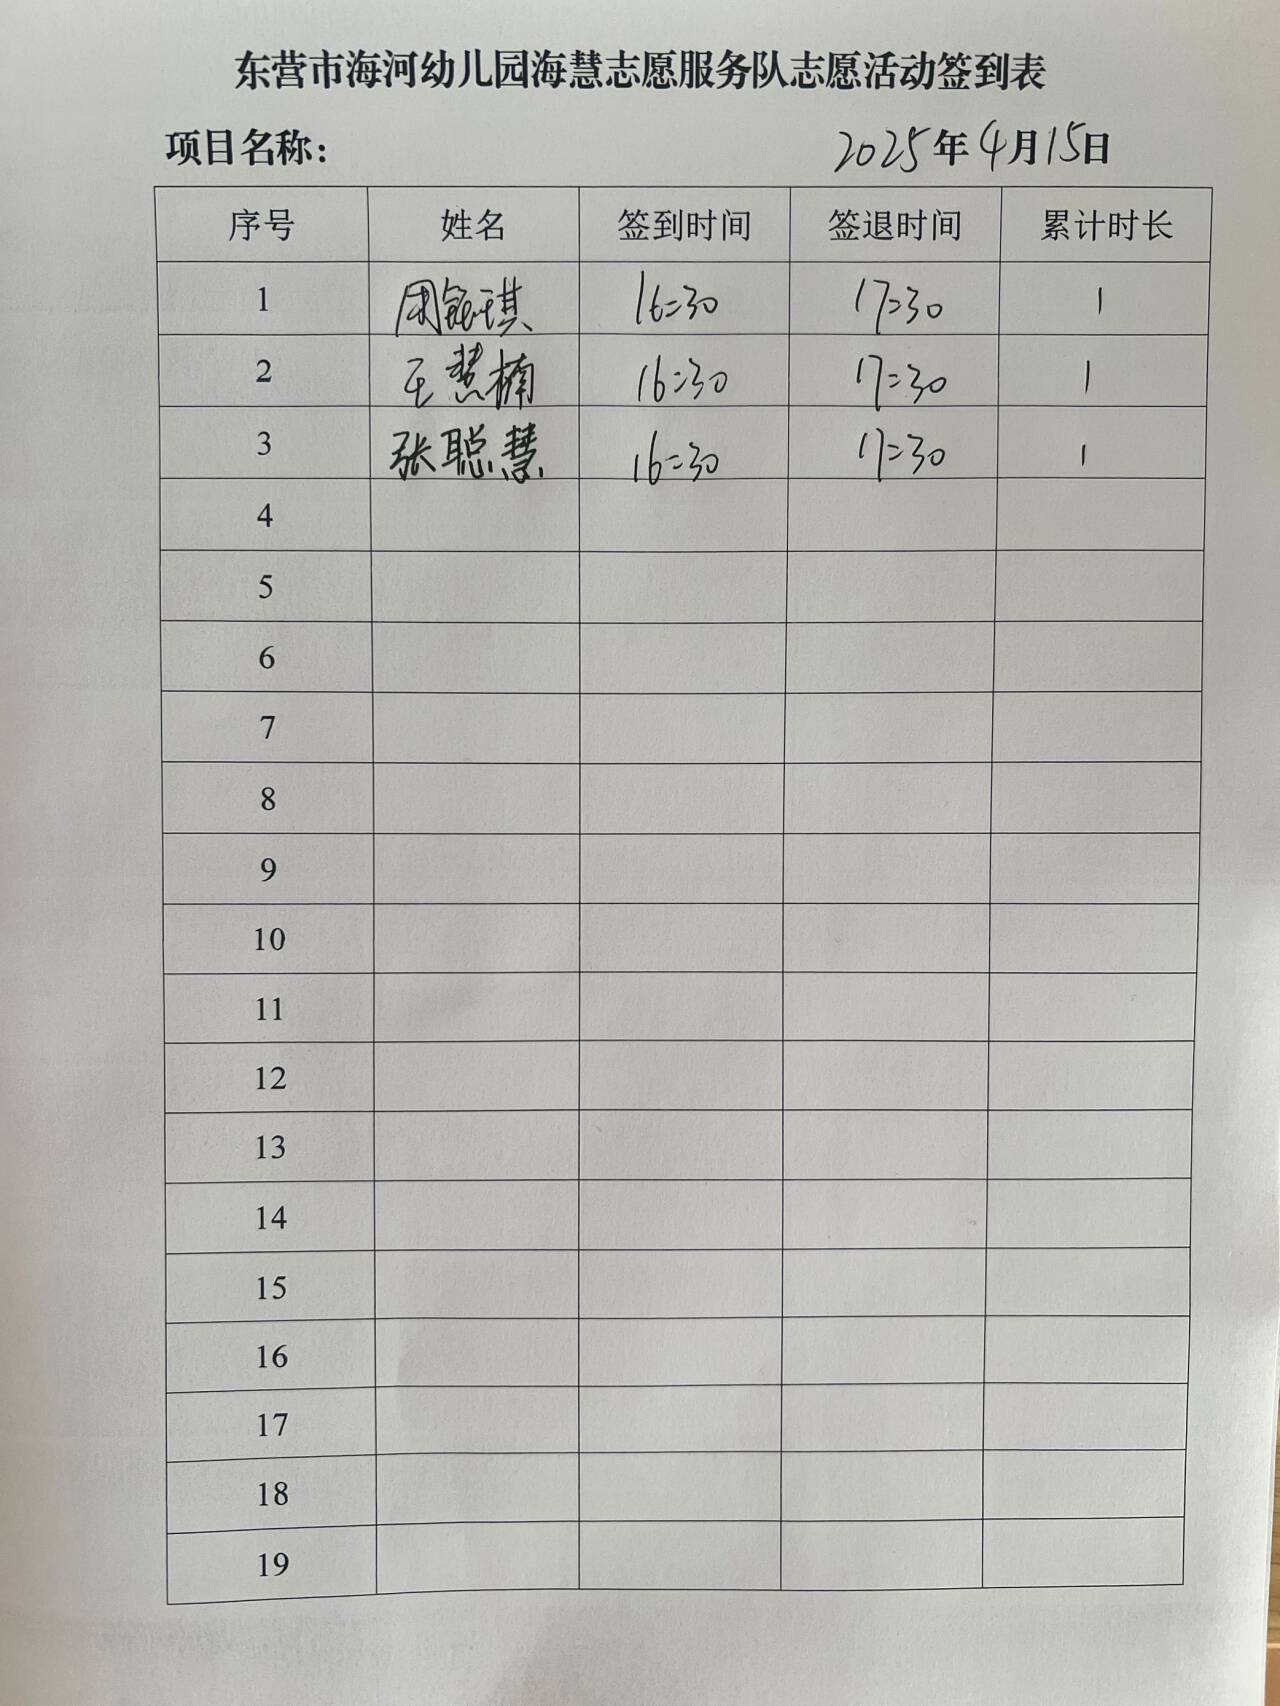 东营市海河幼儿园海慧志愿服务队志愿活动签到表
项目名称： 2025年4月15日
序号 姓名 签到时间 签退时间 累计时长
1 周钰琪 16:30 17:30 1
2 王慧楠 16:30 17:30 1
3 张聪慧 16:30 17:30 1
4
5
6
7
8
9
10
11
12
13
14
15
16
17
18
19